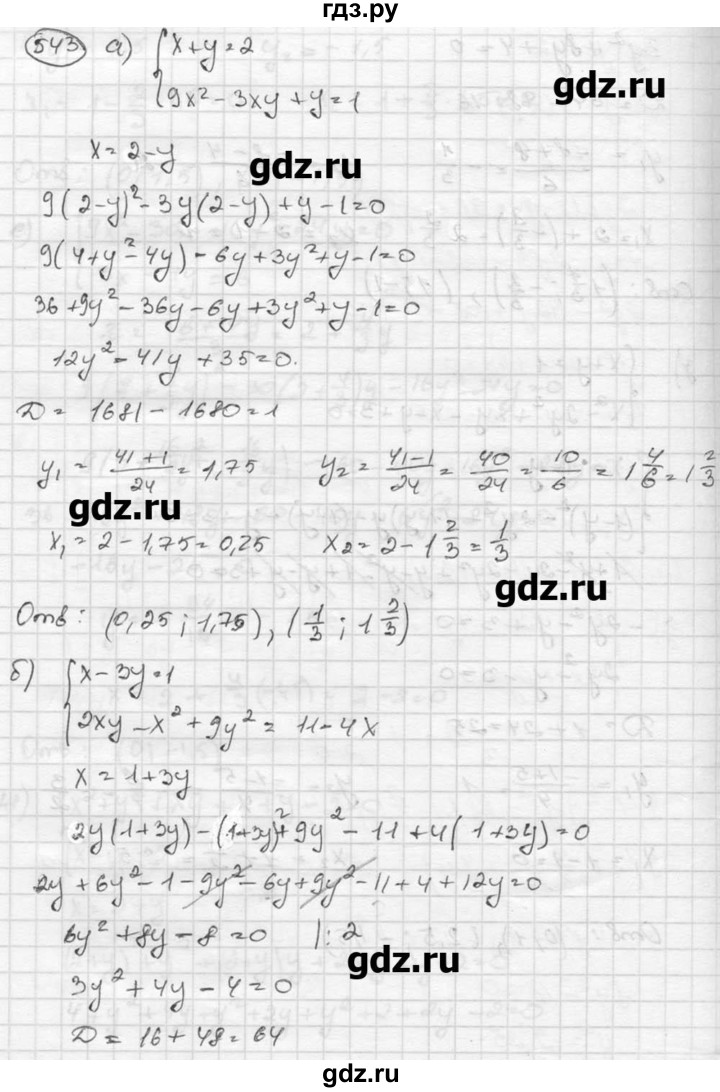 гдз.ру
543 а) { x+y=2
9x² - 3xy + y = 1
gdz.ru
x = 2-y
gdz.ru
9(2-y)² - 3y(2-y) + y - 1 = 0
9(4+y²-4y) - 6y + 3y² + y - 1 = 0
36 + 9y² - 36y - 6y + 3y² + y - 1 = 0
12y² - 41y + 35 = 0.
D = 1681 - 1680 = 1
y₁ = (41+1)/24 = 1,75   y₂ = (41-1)/24 = 40/24 = 10/6 = 1 4/6 = 1 2/3
gdz.ru
x₁ = 2 - 1,75 = 0,25   x₂ = 2 - 1 2/3 = 1/3
gdz.ru
Отв: (0,25 ; 1,75), (1/3 ; 1 2/3)
б) { x - 3y = 1
2xy - x² + 9y² = 11 - 4x
x = 1+3y
2y(1+3y) - (1+3y)² + 9y² - 11 + 4(1+3y) = 0
2y + 6y² - 1 - 9y² - 6y + 9y² - 11 + 4 + 12y = 0
6y² + 8y - 8 = 0   |: 2
gdz.ru
3y² + 4y - 4 = 0
D = 16 + 48 = 64